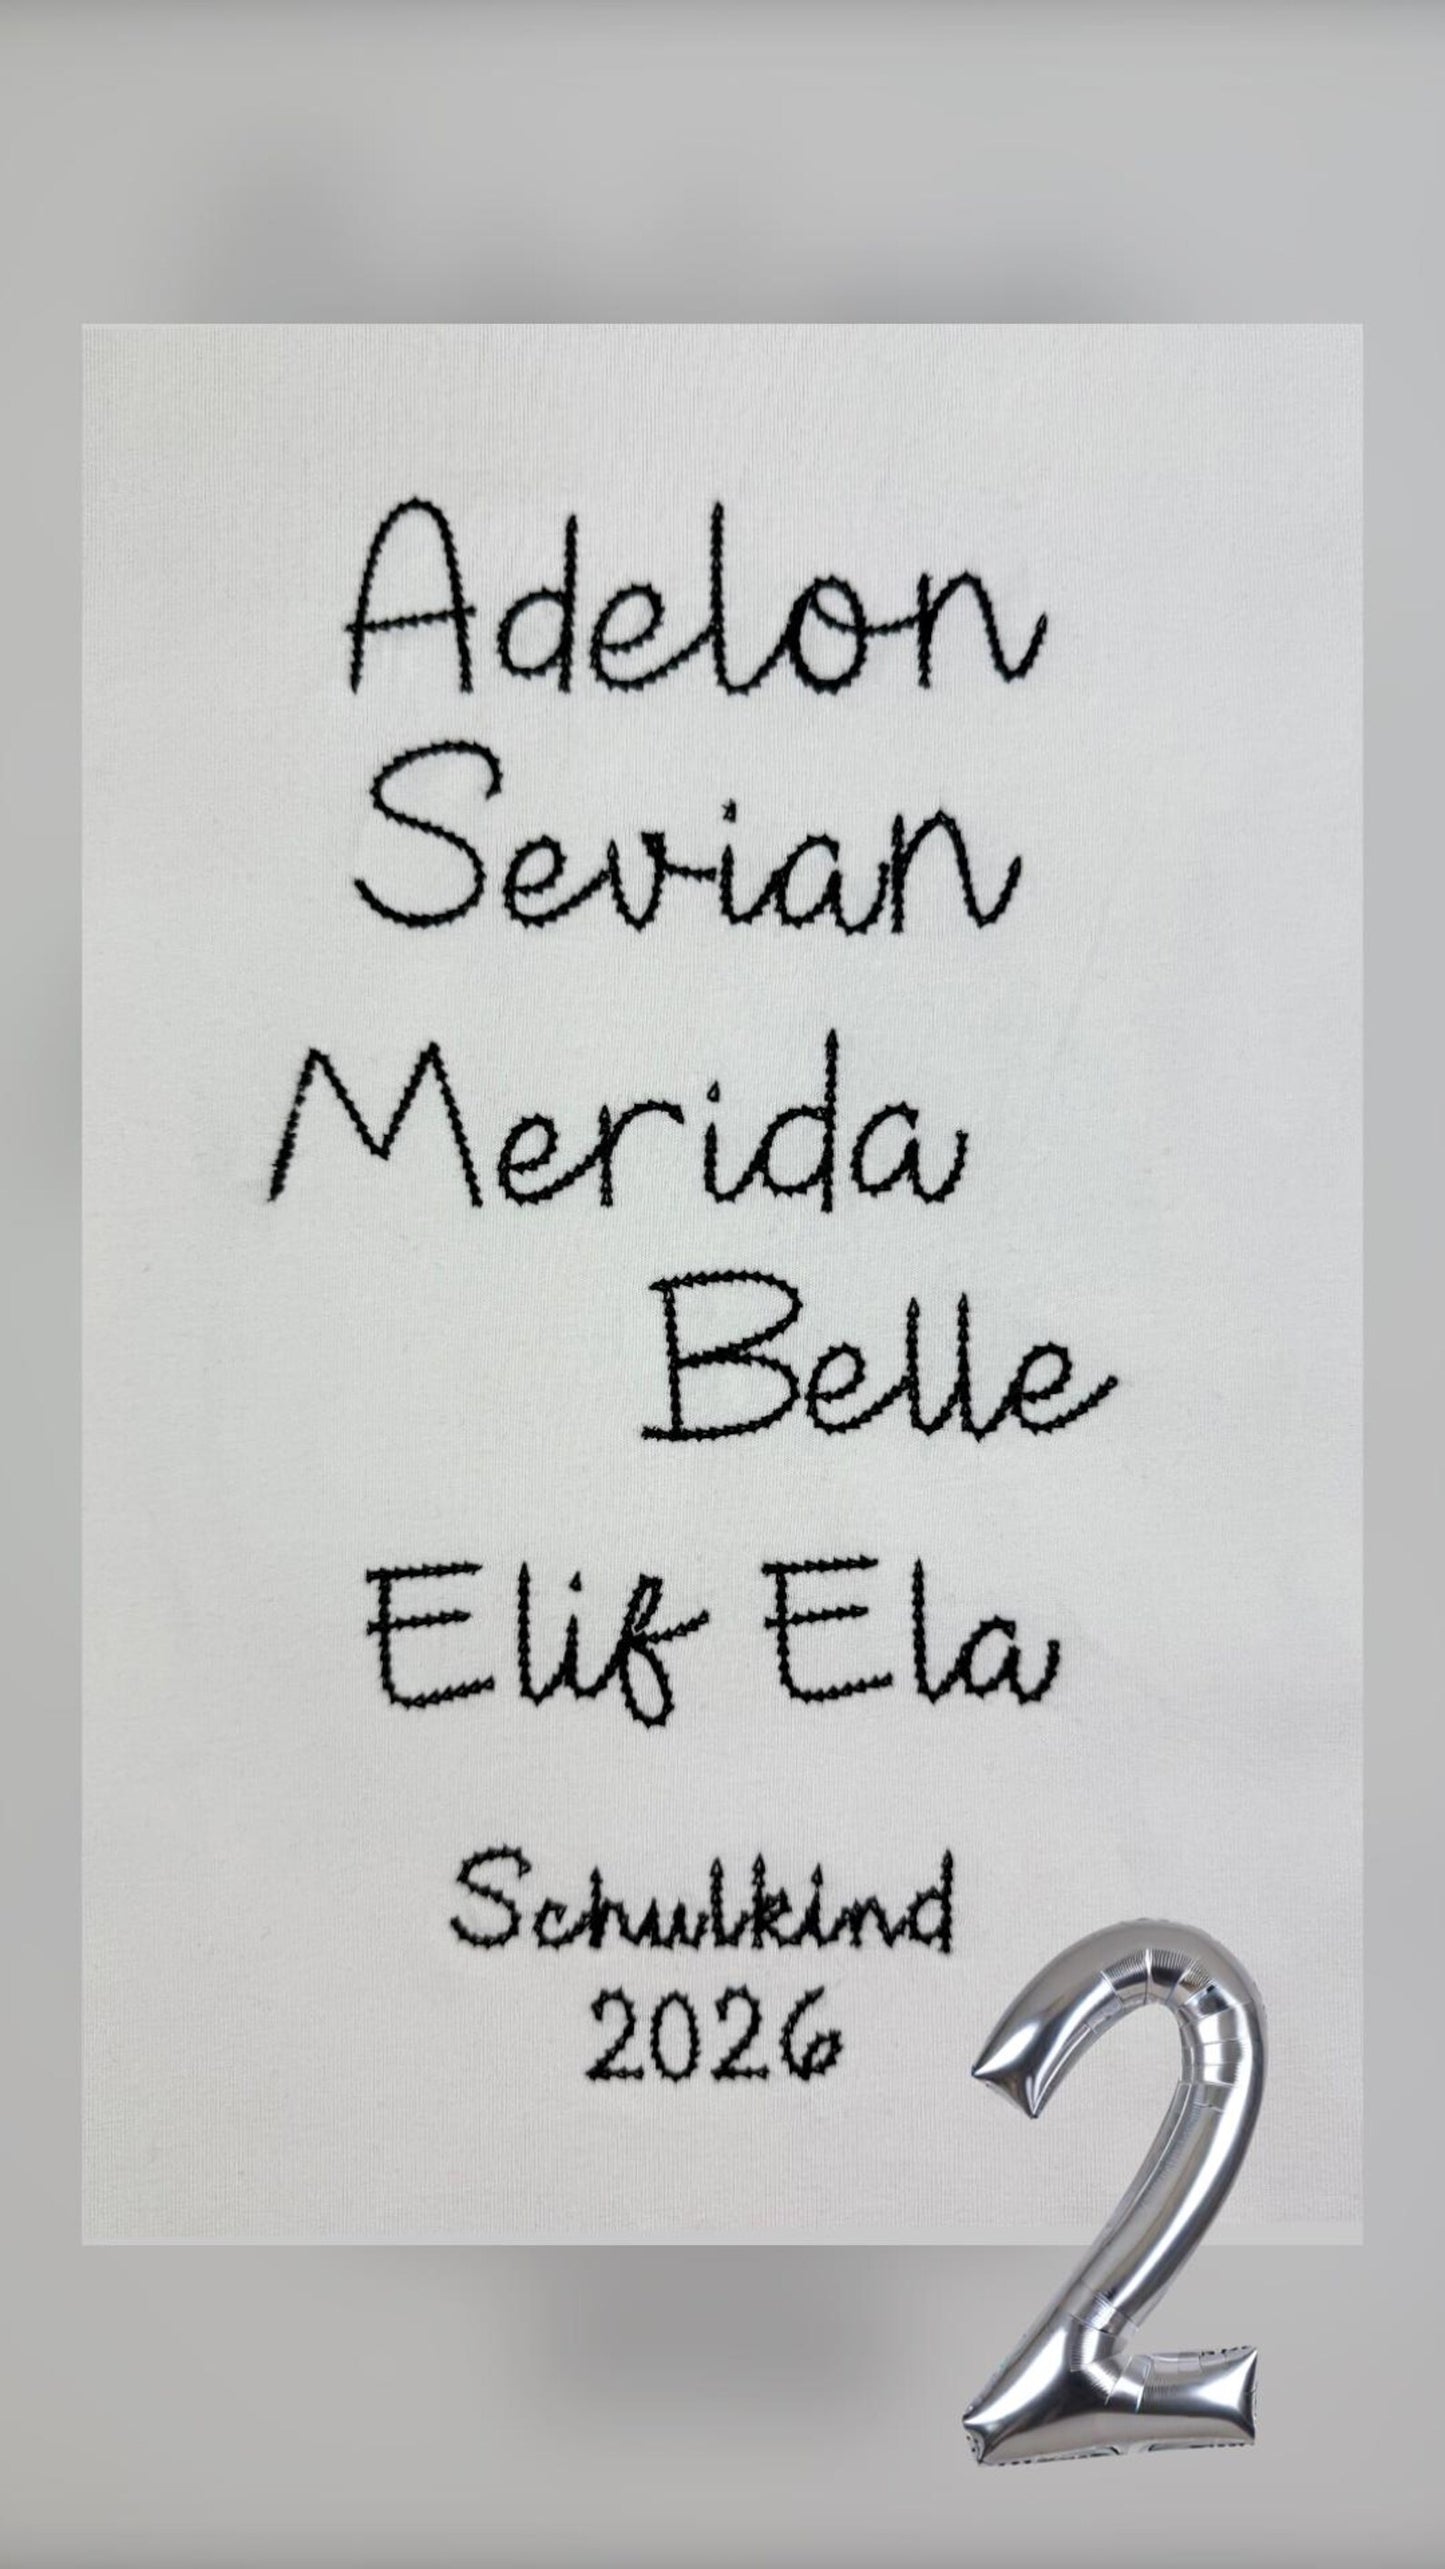 Adelon
Sevian
Merida
Belle
Elif Ela
Schulkind
2026
2